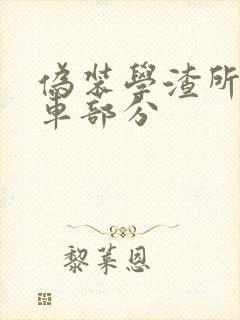 偽裝學渣所
車部分
黎萊恩